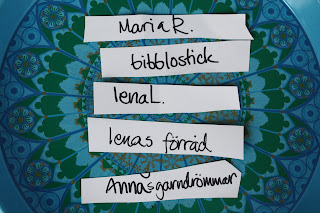 Maria R.
bibblostick
lena L.
lenas förråd
Annas garndrömmar